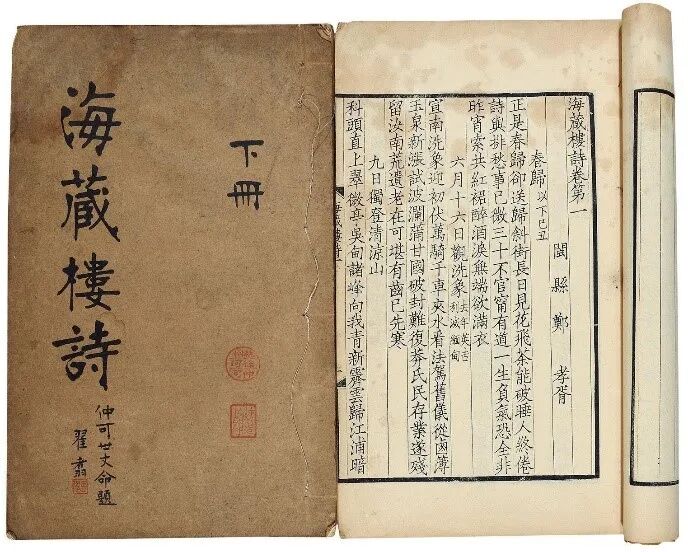 海藏樓詩
下冊
仲可世丈命題
海藏樓詩卷第一
閩縣鄭 孝胥
春歸 以下己丑
正是春歸卻送歸斜街長日見花飛茶能破睡人終倦
詩與排愁事已微三十不官甯有道一生負氣恐全非
昨宵索共紅裙醉酒淚無端欲滿衣
六月十六日觀洗象 去年英吉利滅緬甸
宣南洗象迎初伏萬騎千車夾水看法駕舊儀從鹵簿
玉泉新漲試波瀾蒲甘國破封難復莽氏民存業遂殘
留汝南荒遺老在可堪有齒已先寒
九日獨登清涼山
科頭直上翠微亭吳甸諸峰向我青新霽雲歸江浦暗